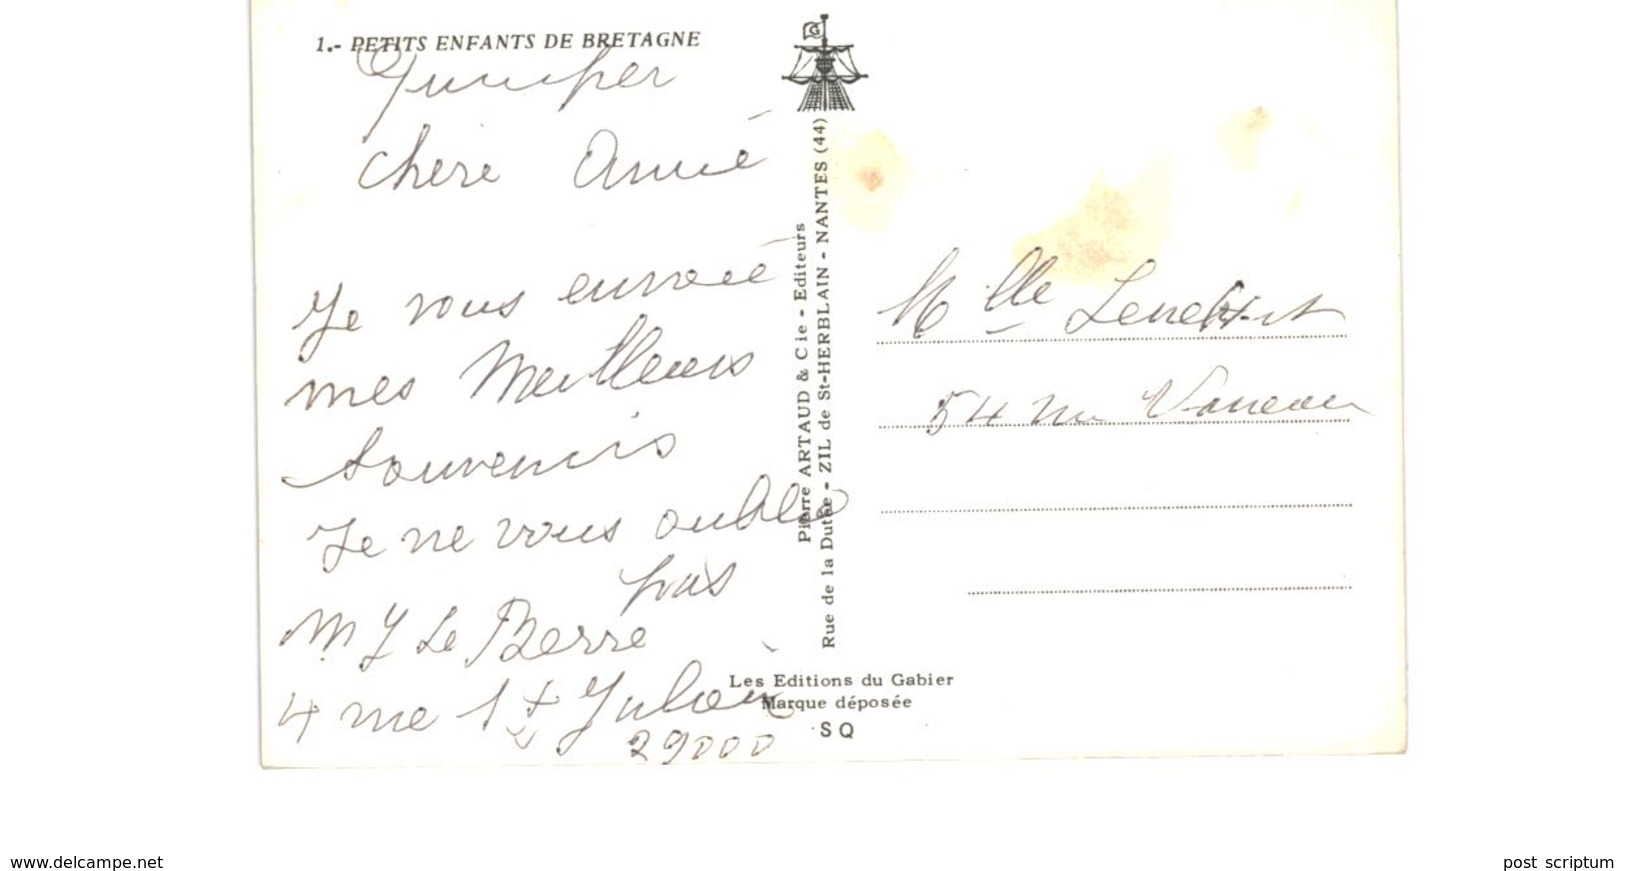 1.- PETITS ENFANTS DE BRETAGNE
Quimper
Chere Amie
Je vous envoie
mes Meilleurs
Souvenirs
Je ne vous oublie
pas
M J Le Berre
4 rue St Julien
29000
Pierre ARTAUD & Cie - Editeurs
Rue de la Dutée - ZIL de St-HERBLAIN - NANTES (44)
G
Les Editions du Gabier
Marque déposée
SQ
Mlle
54 rue Vaneau
www.delcampe.net
post scriptum